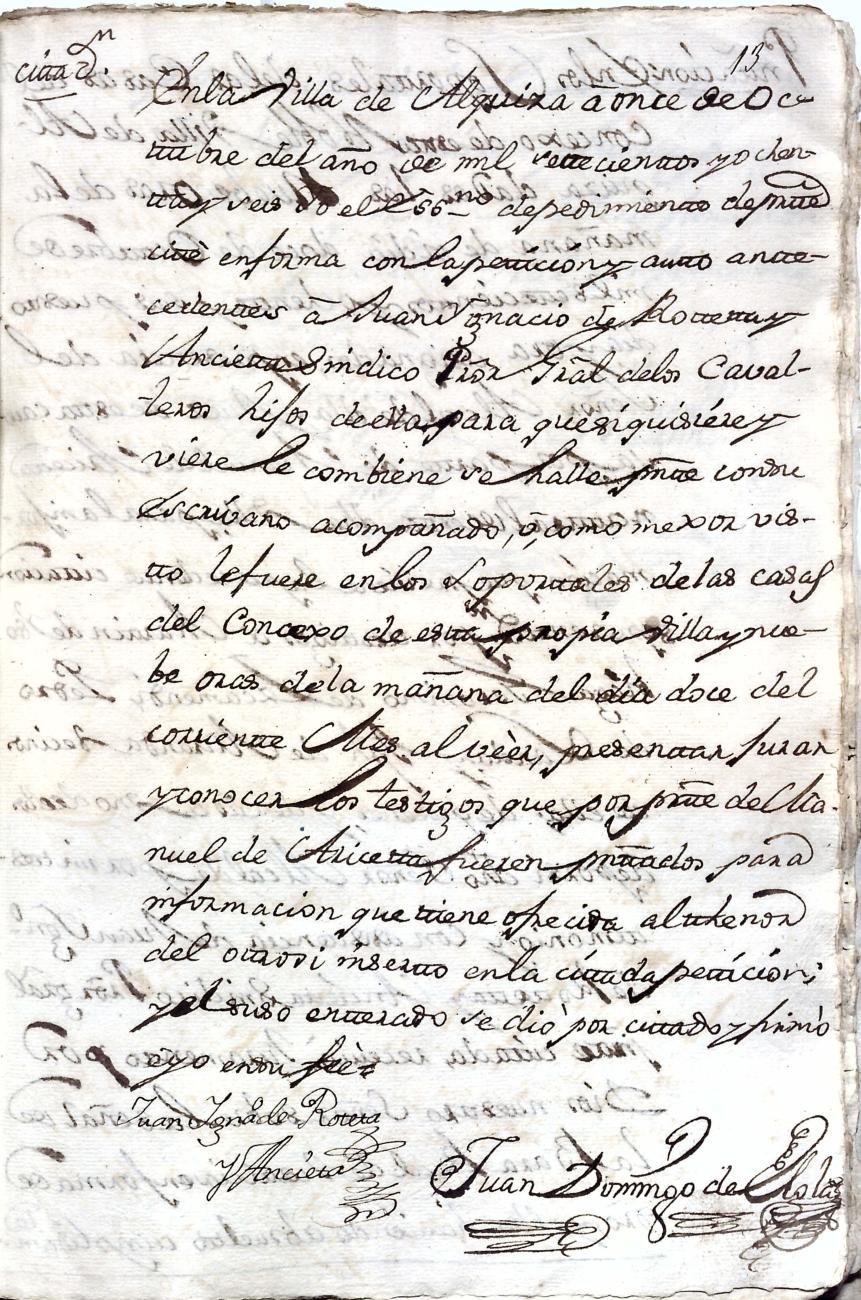 13
Citta on
En la Villa de Alquiza a once de Oc-
tubre del año de mil settecienttos y ochen-
tta y seis yo el Essno de pedimientto de partte
citté en forma con la petticion y autto antte-
cedenttes â Juan Ygnacio de Rottetta y
Ancietta Sindico Pror Gral delos Caval-
leros hijos de ella para que si quisiére y
viere le combiene se halle pntte con su
Escrivano acompañado, ô como mexor vis-
tto le fuere en los Soporttales de las casas
del Concexo de esta propia Villa y nue-
be oras de la mañana del dia doce del
corrientte Mes al vèer, presenttar, Jurar
y conocer los testigos que por partte de Ma-
nuel de Aricetta fueren pnttados para
informacion que tiene ofrecida al thenor
del ottrosi insertto en la cittada petticion;
y el suso entterado se dió por cittado y firmó
e yo en su feè=
Juan Ygno de Roteta
y Ancieta
Juan Domingo de